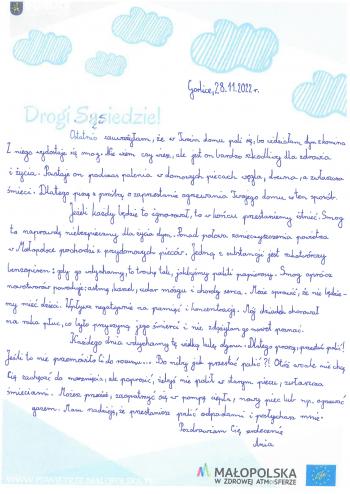 Gorlice, 28.11.2022 r.
Drogi Sąsiedzie!
Ostatnio zauważyłam, że w Twoim domu pali się, bo widziałam dym z komina
I niego wydostaje się smog. Nie wiem czy wiesz, ale jest on bardzo szkodliwy dla zdrowia
i życia. Powstaje on podczas palenia w domowych piecach węgla, drewna, a zwłaszcza
śmieci. Dlatego piszę z prośbą o zaprzestanie ogrzewania Twojego domu w ten sposób.
Jeżeli każdy będzie to ignorował, to w końcu przestaniemy istnieć. Smog
to naprawdę niebezpieczny dla życia dym. Ponad połowa zanieczyszczenia powietrza
w Małopolsce pochodzi z przydomowych pieców. Jedną z substancji jest rakotwórczy
benzopiren: gdy go wdychamy, to trochę tak, jakbyśmy palili papierosy. Smog oprócz
nowotworów powoduje: astmę, kaszel, udar mózgu i choroby serca. Może sprawić, że nie będzie-
my mieć dzieci. Wpływa negatywnie na pamięć i koncentrację. Mój dziadek chorował
na raka płuc, co było przyczyną jego śmierci i nie zdążyłam go nawet poznać.
Każdego dnia wdychamy tę wielką kulę dymu. Dlatego proszę, przestań palić!
Jeśli to nie przemówiło Ci do rozumu... Bo niby jak przestać palić?! Otóż wcale nie chcę
Cię zachęcać do marznięcia, ale poprosić, żebyś nie palił w starym piecu, zwłaszcza
śmieciami. Możesz przecież, zaopatrzyć się w pompę ciepła, nowy piec lub np. ogrzewać
gazem. Mam nadzieję, że przestaniesz palić odpadami i posłuchasz mnie.
Pozdrawiam Cię, serdecznie
Ania
WWW.POWIETRZE.MALOPOLSKA.PL
MAŁOPOLSKA
W ZDROWEJ ATMOSFERZE